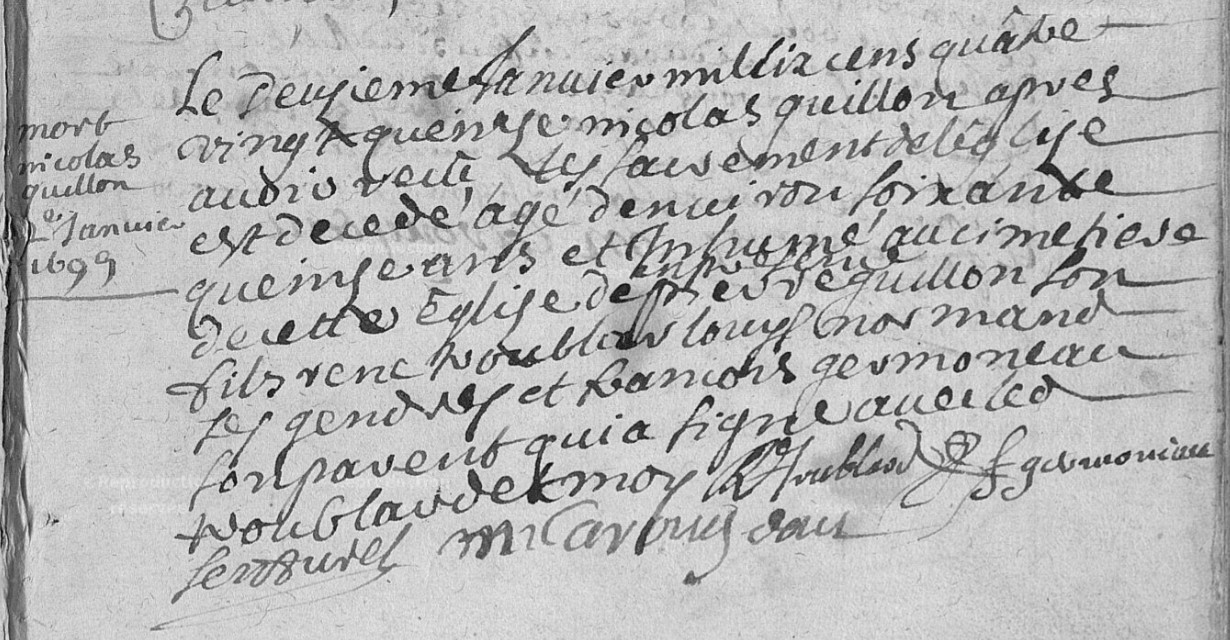 mort
nicolas
guillon
2e Januier
1699
Le deusieme Januier mil six cens quâtre
vingt queinse nicolas guillon apres
auoir recû les sacrement de léglise
est decedé âgé denuiron soixante
queinse ans et Inhumé au cimetiere
de cette Eglise en presence de pierre guillon son
fils rene troublard louys normand
ses gendres et francois germoneau
son parent qui a signé auec led
troublard et moy R troublard f germoneau